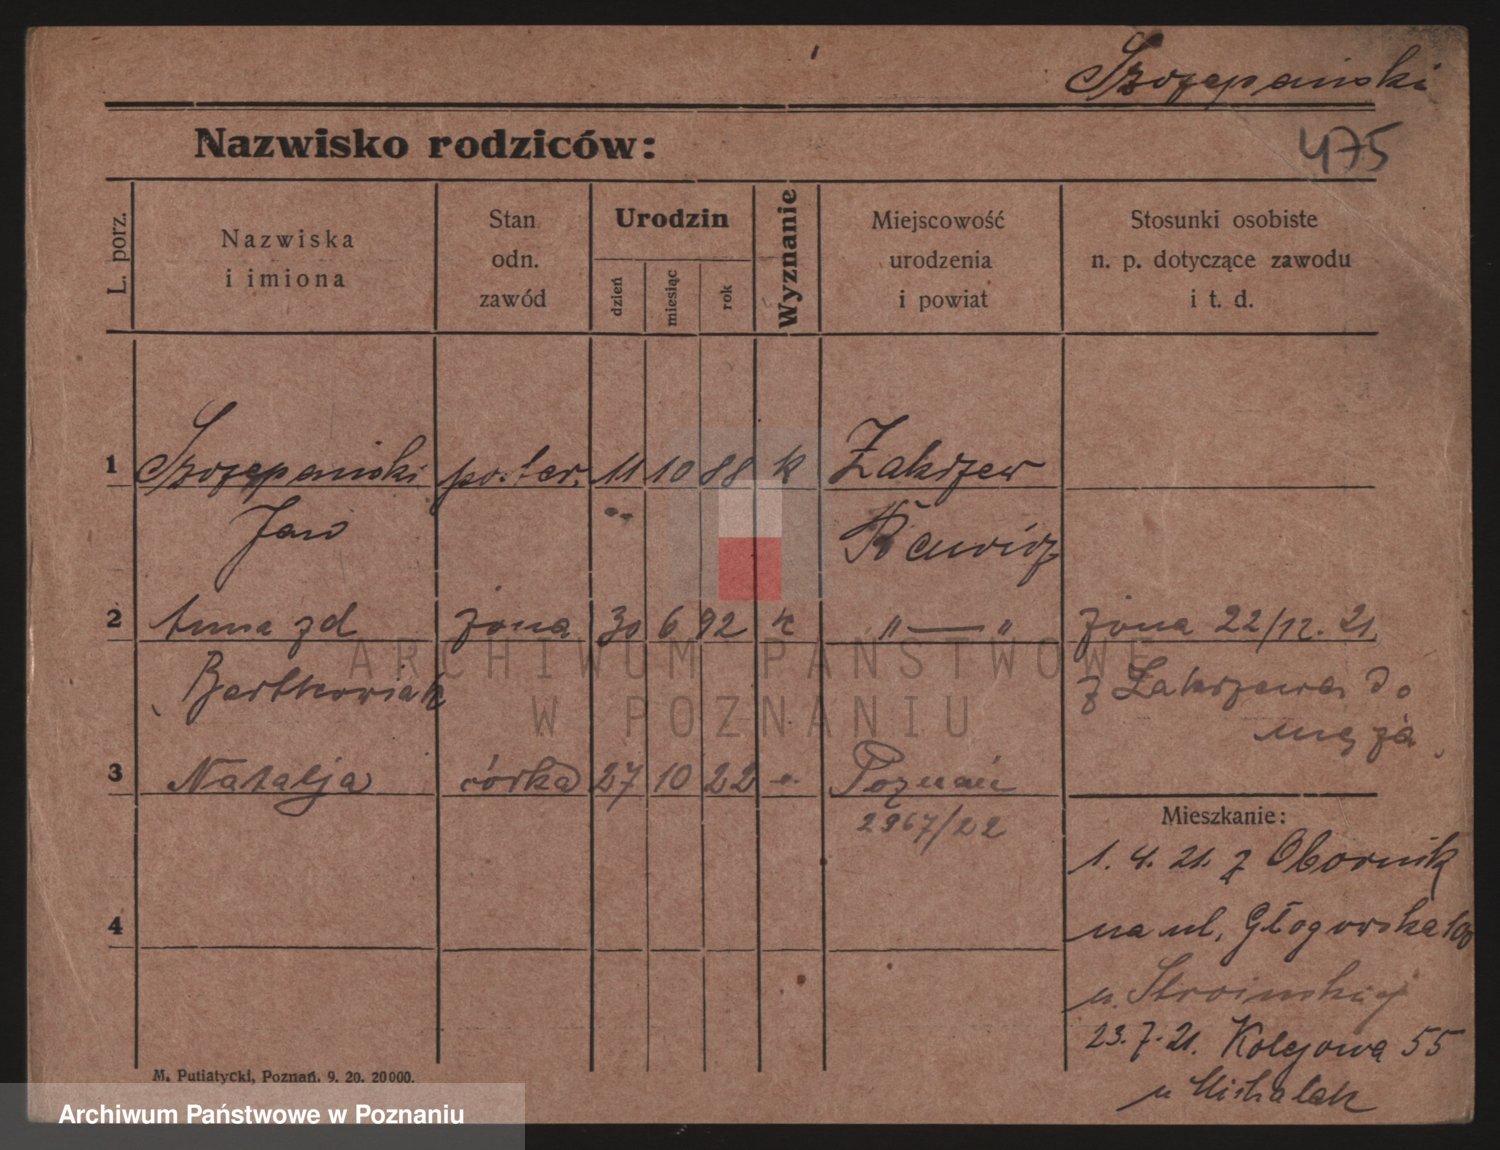 Szczepański
Nazwisko rodziców:
475
L. porz.
Nazwiska
i imiona
Stan
odn.
zawód
Urodzin
dzień
miesiąc
rok
Wyznanie
Miejscowość
urodzenia
i powiat
Stosunki osobiste
n. p. dotyczące zawodu
i t. d.
1 Szczepański poster. 11 10 88 k Zakrzew
Jan Rawicz
2 Anna zd żona 30 6 92 k " — " żona 22/12. 21
Bartkowiak z Zakrzewa do
męża
3 Natalja córka 27 10 22 Poznań
2967/22
Mieszkanie:
1. 4. 21. z Obornik
4
na ul. Głogowska 100
u. Stroińskiej
23. 7. 21. Kolejowa 55
u Michalak
M. Putiatycki, Poznań. 9. 20. 20000.
ARCHIWUM PAŃSTWOWE
W POZNANIU
Archiwum Państwowe w Poznaniu